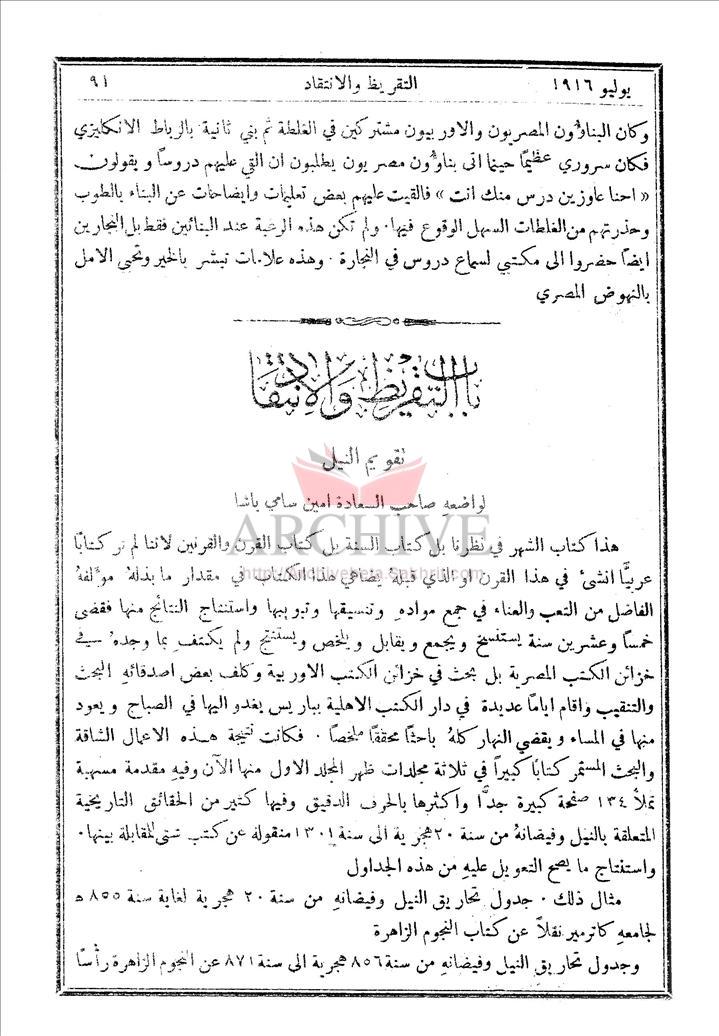 يوليو ١٩١٦ التقريظ والانتقاد ٩١
وكان البناؤون المصريون والاوربيون مشتركين في الغلطة ثم بني ثانية بالرباط الانكليزي
فكان سروري عظيمًا حينما اتى بناؤون مصريون يطلبون ان القي عليهم دروسًا ويقولون
« احنا عاوزين درس منك انت » فالقيت عليهم بعض تعليمات وايضاحات عن البناء بالطوب
وحذرتهم من الغلطات السهل الوقوع فيها. ولم تكن هذه الرغبة عند البنائين فقط بل النجارين
ايضًا حضروا الى مكتبي لسماع دروس في النجارة . وهذه علامات تبشر بالخير وتحيي الامل
بالنهوض المصري
باب التقريظ والانتقاد
تقويم النيل
لواضعه صاحب السعادة امين سامي باشا
ARCHIVE
http://Archivebeta.Sakhrit.com
هذا كتاب الشهر في نظرنا بل كتاب السنة بل كتاب القرن والقرنين لاننا لم نر كتابًا
عربيًّا انشئ في هذا القرن او الذي قبله يضاهي هذا الكتاب في مقدار ما بذله مؤلفه
الفاضل من التعب والعناء في جمع مواده وتنسيقها وتبويبها واستنتاج النتائج منها فقضى
خمسًا وعشرين سنة يستنسخ ويجمع ويقابل ويلخص ويستنتج ولم يكتف بما وجده في
خزائن الكتب المصرية بل بحث في خزائن الكتب الاوربية وكلف بعض اصدقائه البحث
والتنقيب واقام ايامًا عديدة في دار الكتب الاهلية بباريس يغدو اليها في الصباح ويعود
منها في المساء ويقضي النهار كله باحثًا محققًا ملخصًا . فكانت نتيجة هذه الاعمال الشاقة
والبحث المستمر كتابًا كبيرًا في ثلاثة مجلدات ظهر المجلد الاول منها الآن وفيه مقدمة مسهبة
تملأ ١٣٤ صفحة كبيرة جدًّا واكثرها بالحرف الدقيق وفيها كثير من الحقائق التاريخية
المتعلقة بالنيل وفيضانه من سنة ٢٠ هجرية الى سنة ١٣٠١ منقولة عن كتب شتى للمقابلة بينها.
واستنتاج ما يصح التعويل عليه من هذه الجداول
مثال ذلك . جدول تحاريق النيل وفيضانه من سنة ٢٠ هجرية لغاية سنة ٨٥٥ ه
لجامعه كاترمير نقلاً عن كتاب النجوم الزاهرة
وجدول تحاريق النيل وفيضانه من سنة ٨٥٦ هجرية الى سنة ٨٧١ عن النجوم الزاهرة رأسًا